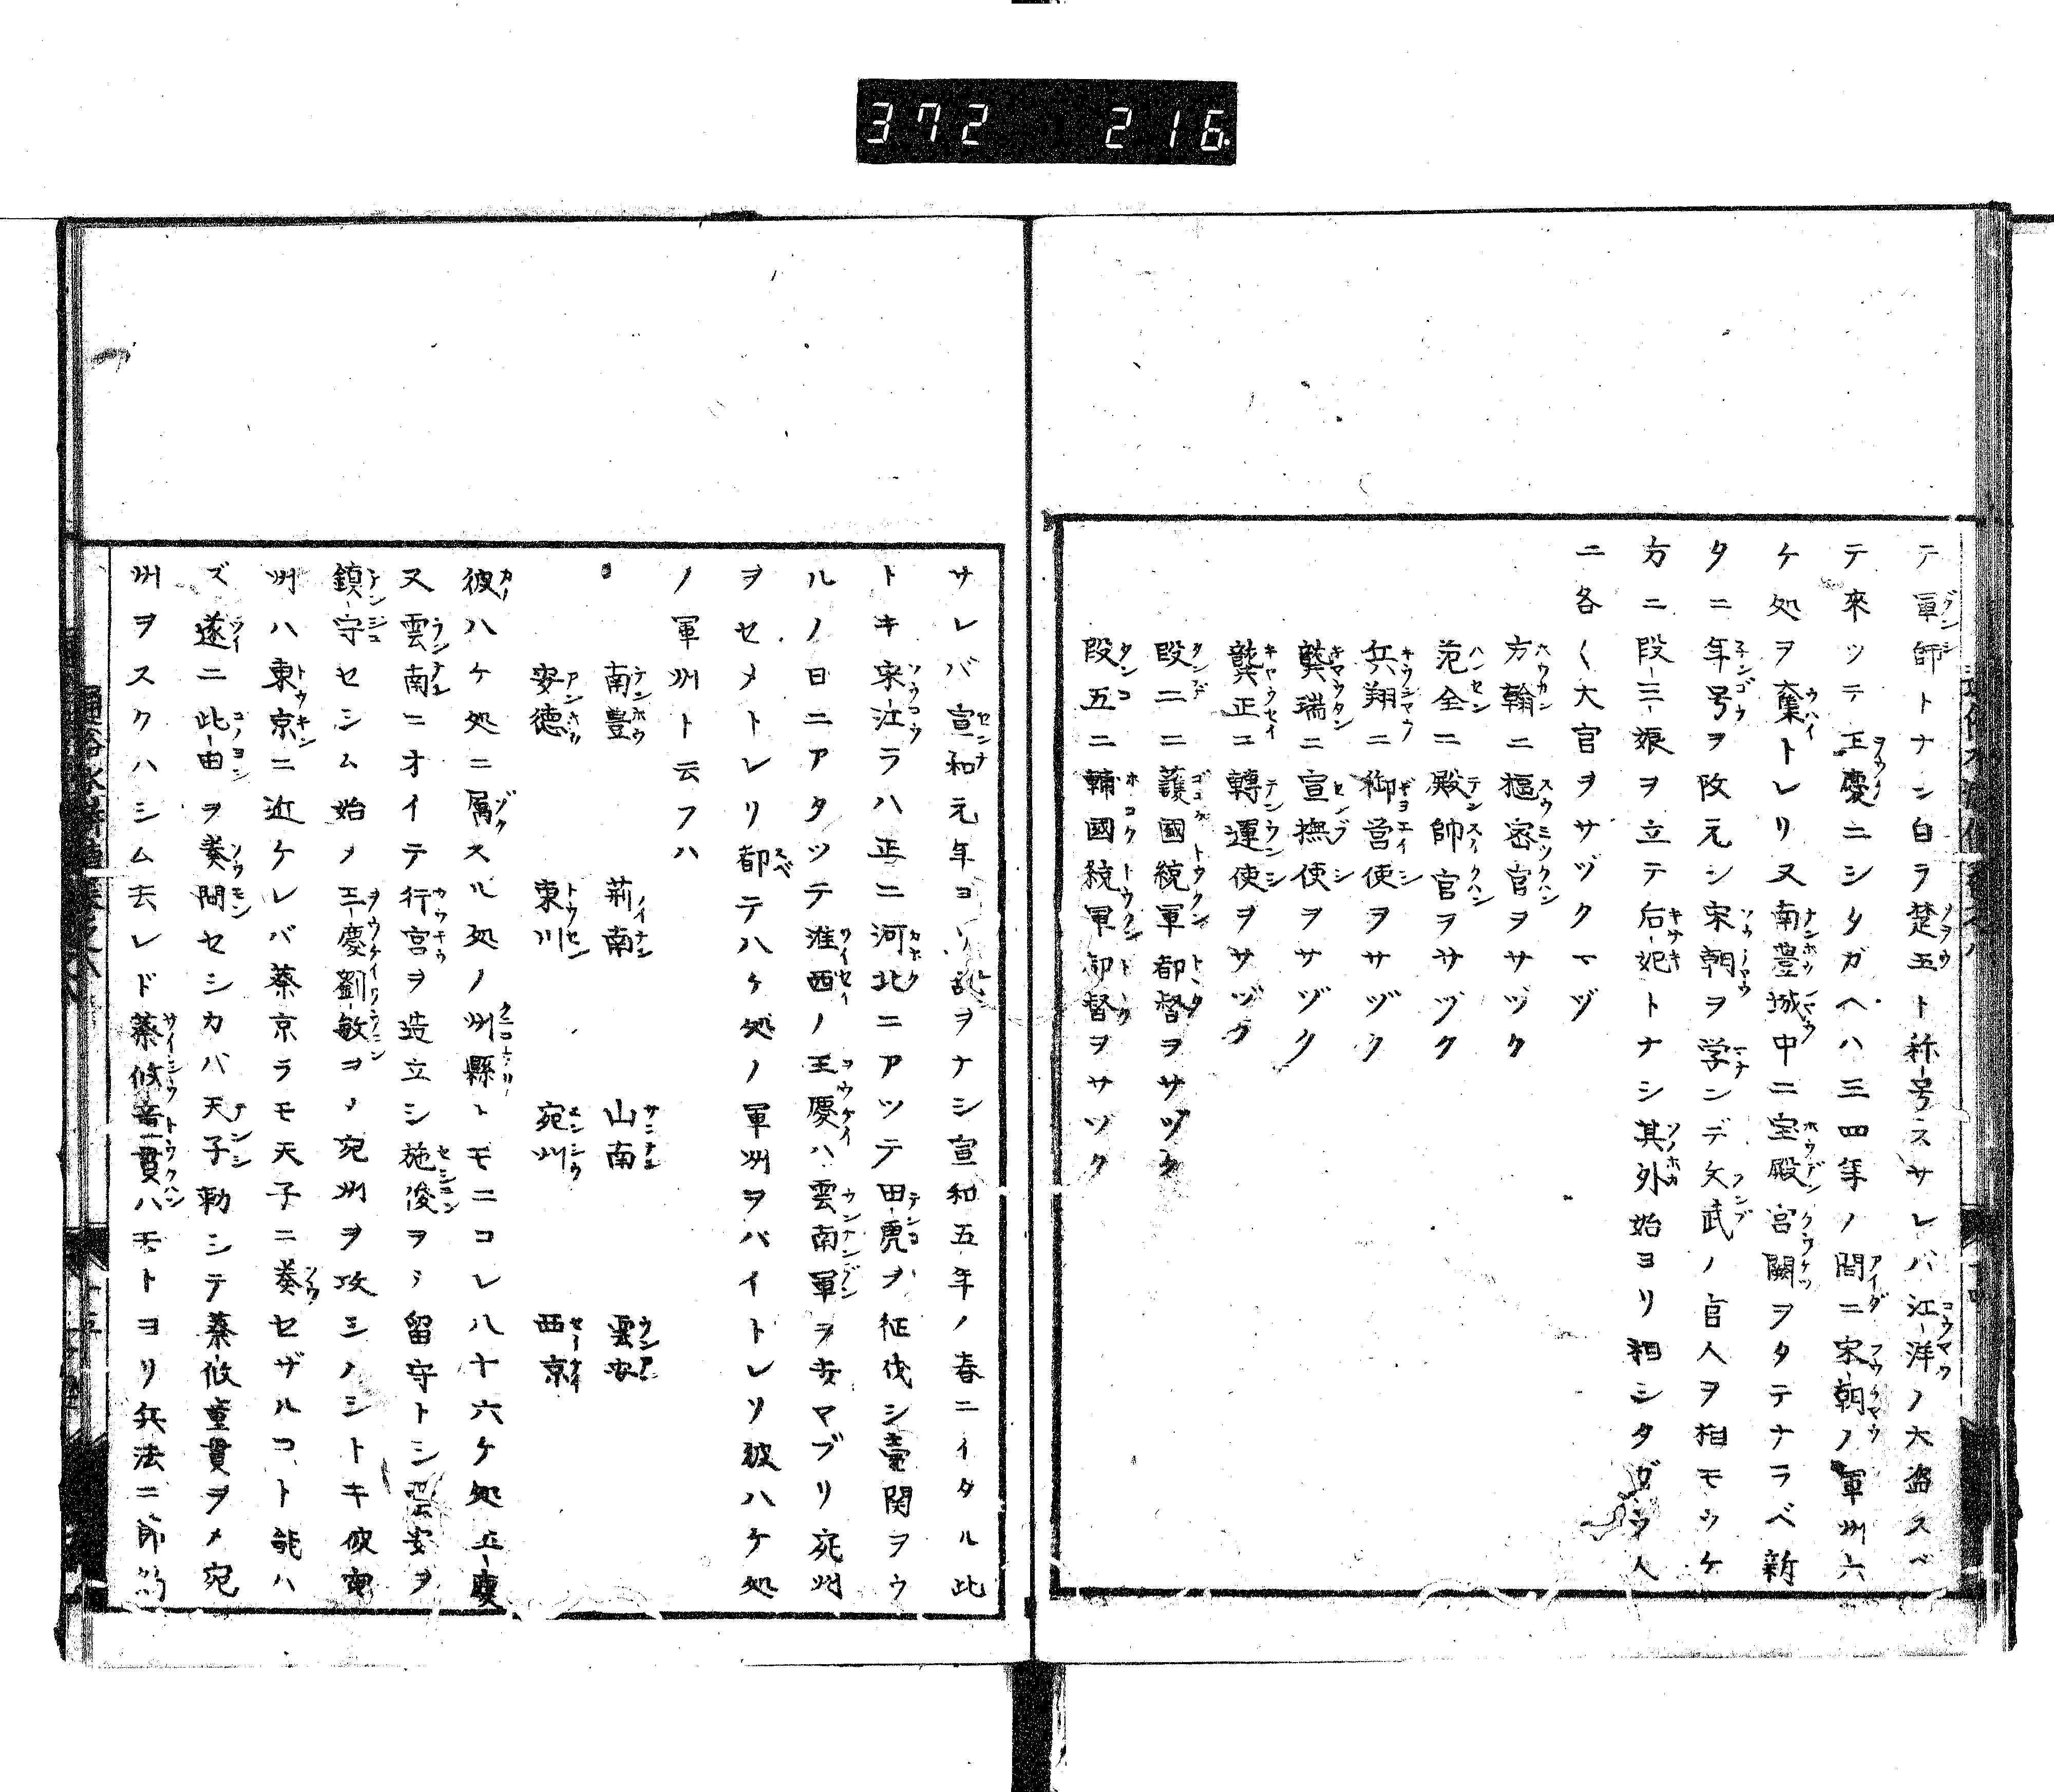 372 216
テ軍師トナシ自ラ楚王ト称号スサレバ江洋ノ大盗スベ
テ來ツテ王慶ニシタガヘハ三四年ノ間ニ宋朝ノ軍州六
ケ処ヲ奪トレリ又南豊城中ニ宝殿宮闕ヲタテナラベ新
タニ年号ヲ改元シ宋朝ヲ学ンデ文武ノ官人ヲ相モウケ
方ニ段三娘ヲ立テ后妃トナシ其外始ヨリ相シタガウ人
ニ各〱大官ヲサヅク マヅ
方翰ニ樞密官ヲサヅク
范全ニ殿帥官ヲサヅク
兵翔ニ御営使ヲサヅク
龔瑞ニ宣撫使ヲサヅク
龔正ニ轉運使ヲサヅク
段二ニ護國統軍都督ヲサヅク
段五ニ輔國統軍都督ヲサヅク
サレバ宣和元年ヨリ乱ヲナシ宣和五年ノ春ニイタル此
トキ宋江ラハ正ニ河北ニアツテ田虎ヲ征伐シ壷関ヲウ
ルノ日ニアタツテ淮西ノ王慶ハ雲南軍ヲヤブリ宛州
ヲセメトレリ都テ八ケ処ノ軍州ヲバイトレリ彼ハケ処
ノ軍州ト云フハ
南豊 荊南 山南 雲安
安徳 東川 宛州 西京
彼ハケ処ニ属スル処ノ州縣トモニコレ八十六ケ処王慶
又雲南ニオイテ行宮ヲ造立シ施俊ヲ留守トシ雲安ヲ
鎮守セシム始メ王慶劉敏ヲ宛州ヲ攻シノシトキ彼宛
州ハ東京ニ近ケレバ蔡京ラモ天子ニ奏セザルコト能ハ
ズ遂ニ此由ヲ奏問セシカバ天子勅シテ蔡攸童貫ヲメ宛
州ヲスクハシム去レド蔡攸童貫ハモトヨリ兵法ニ節